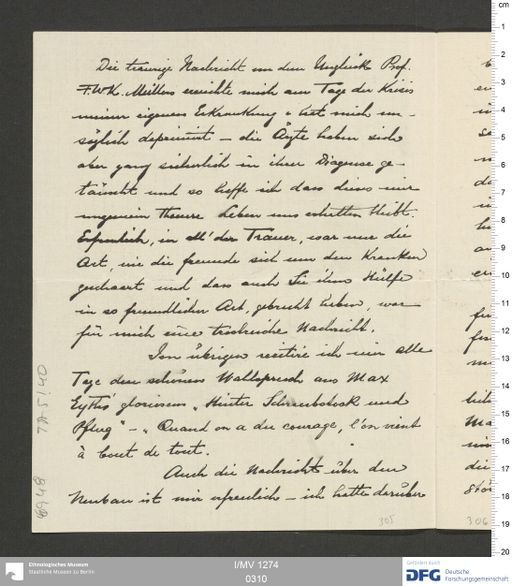 Die traurige Nachricht von dem Unglück Prof.
F.W.K. Müllers erreichte mich am Tage der Krisis
meiner eigenen Erkrankung u. hat mich un-
säglich deprimirt – die Ärzte haben sich
aber ganz sicherlich in ihrer Diagnose ge-
täuscht und so hoffe ich dass dieses mir
ungemein theure Leben uns erhalten bleibt.
Erfreulich, in all' der Trauer, war nur die
Art, wie die Freunde sich um den Kranken
geschaart und dass auch Sie ihm Hülfe
in so freundlicher Art, gebracht haben, war
für mich eine trostreiche Nachricht.
Im übrigen recitire ich mir alle
Tage den schönen Wahlspruch aus Max
Eyths' gloriosem „Hinter Schraubstock und
Pflug" – „Quand on a du courage, l'on vient
à bout de tout."
Auch die Nachricht über den
Neubau ist mir erfreulich – ich hatte darüber
305
306
TA 5140
Ethnologisches Museum
Staatliche Museen zu Berlin
I/MV 1274
0310
Gefördert durch
DFG Deutsche
Forschungsgemeinschaft
cm
1
2
3
4
5
6
7
8
9
10
11
12
13
14
15
16
17
18
19
20